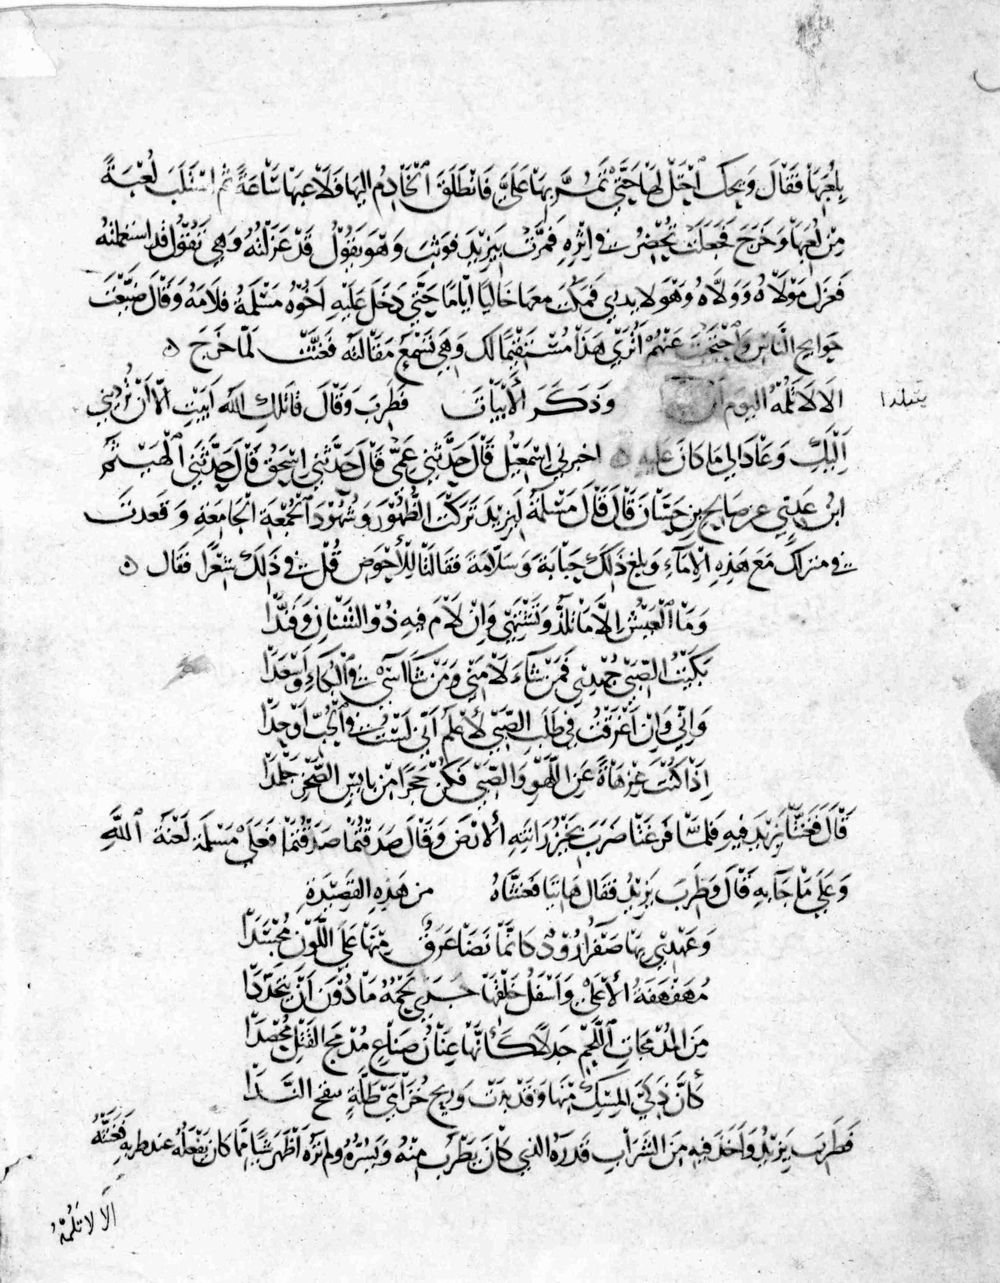 بلعبها فقال ويحك احتل لها حتى تمر بها علي فانطلق الخادم اليها ولاعبها ساعة ثم استلب لعبة
من لعبها وخرج فجعلت تحضر في اثره فمرت بيزيد فوثب وهو يقول قد عزلته وهي تقول قد استعملته
فعزل مولاه وولاه وهو لا يدري فمكث معها خاليا اياما حتى دخل عليه اخوه مسلمة فلامه وقال ضيعت
حوايج الناس واحتجبت عنهم اترى هذا مستقيما لك وهي تسمع مقالته فغنت لما خرج ه
الا لا تلمه اليوم ان يتبلدا وذكر الابيات فطرب وقال قاتلك الله ابيت الا ان ترديني
اليك وعاد الى ما كان عليه ه اخبرني اسمعيل قال حدثني عمي قال حدثني اسحق قال حدثني الهيثم
ابن عدي عن صالح بن حسان قال قال مسلمة ليزيد تركت الظهور وشهود الجمعة الجامعة وقعدت
في منزلك مع هذه الاماء وبلغ ذلك حبابة وسلامة فقالتا للاحوص قل في ذلك شعرا فقال ه
وما العيش الا ما تلذ وتشتهي وان لام فيه ذو الشنان وفندا
بكيت الصبى جهدي فمن شاء لامني ومن شا اسى في البكاء واسعدا
واني وان اغرقت في طلب الصبى لاعلم اني لست في الحب اوحدا
اذا كنت عزهاة عن اللهو والصبى فكن حجرا من يابس الصخر جلمدا
قال فغنتا يزيد فيه فلما فرغتا ضرب بخيزرانته الارض وقال صدقتما صدقتما فعلى مسلمة لعنة الله
وعلى ما جا به قال وطرب يزيد فقال هاتيا فغنتاه من هذه القصيدة
وعهدي بها صفرا رود كانما نضا عرق منها على اللون مجسدا
مهفهفة الاعلى واسفل خلقها جرى لحمه ما دون ان يتخددا
من المدمجات اللحم جدلا كانها عنان صناع مدمج الفتل محصدا
كان ذكي المسك منها وقد بدت وريح خزامى طلة تنفح الندا
فطرب يزيد واخذ فيه من الشراب قدره الذي كان يطرب منه ويسره ولم تره اظهر شيا مما كان يفعله عند طربه فغنته
الا لا تلمه